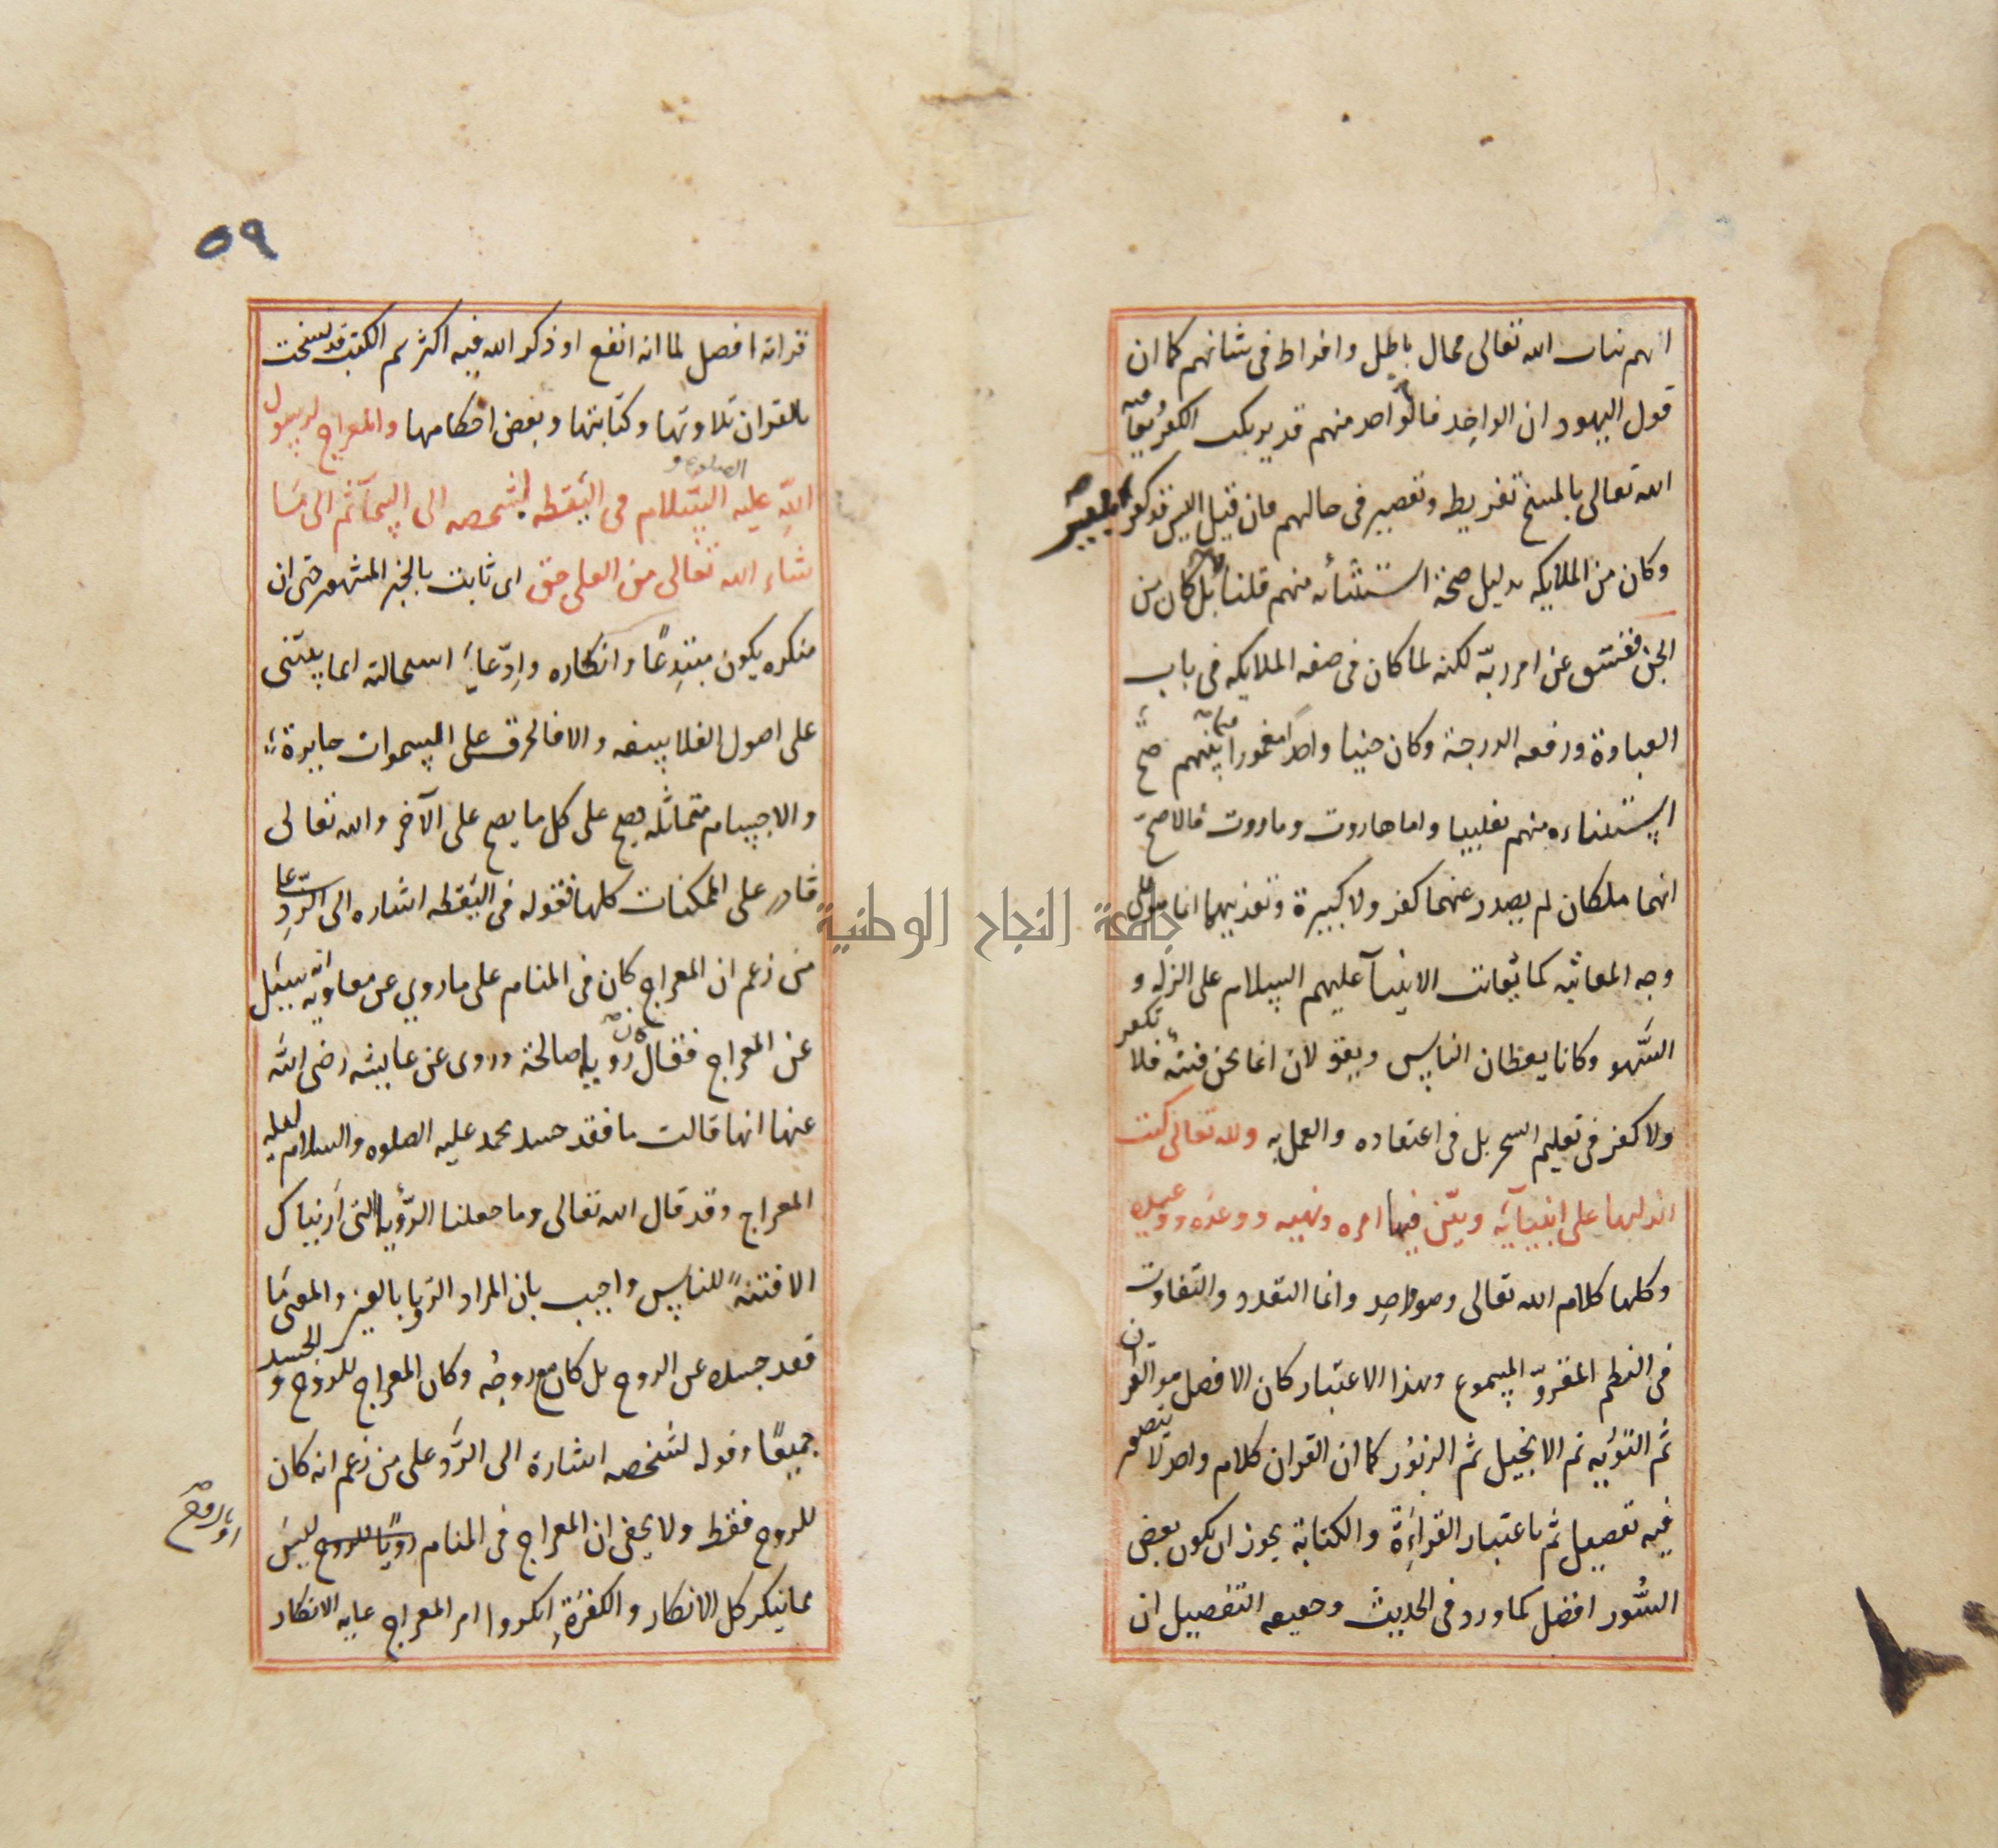 انهم بنات الله تعالى محال باطل وافراط فى شانهم كما ان
قول اليهود ان الواحد فالواحد منهم قد يرتكب الكفر ويعاقبه
الله تعالى بالمسخ تفريط وتقصير فى حالهم فان قيل اليس قد كفر ابليس
وكان من الملايكه بدليل صحة استثنائه منهم قلنا لا بل كان من
الجن ففسق عن امر ربّه لكنه لما كان فى صفه الملايكه فى باب
العبادة ورفعه الدرجة وكان جنيا واحدا مغمورا فيما بينهم صح
استثناءه منهم تغليبا واما هاروت وماروت فالاصح
انهما ملكان لم يصدر عنهما كفر ولا كبيرة وتعذيبهما انما هو على
وجه المعاتبه كما يعاتب الانبيآ عليهم السلام على الزلة و
السَّهو وكانا يعظان الناس ويقولان انما نحن فتنة فلا تكفر
ولا كفر فى تعليم السحر بل فى اعتقاده والعمل به ولله تعالى كتب
انزلها على انبيآيه وبيّن فيها امره ونهيه ووعده ووعيده
وكلها كلام الله تعالى وهو واحد وانما التعدد والتفاوت
فى النظم المقروّ المسموع وبهذا الاعتبار كان الافضل هو القران
ثم التوريه ثم الانجيل ثم الزبور كما ان القران كلام واحد لا يتصور
فيه تفصيل ثم باعتبار القراءة والكتابة يجوز ان يكون بعض
السُّور افضل كما ورد فى الحديث وحقيقه التفصيل ان
٥٩
قراته افضل لما انه انفع او ذكر الله فيه اكثر ثم الكتب قد نسخت
بالقران تلاوتها وكتابتها وبعض احكامها والمعراج لرسول
الصلوة و
الله عليه السّلام فى اليَقظه بشخصه الى السمآ ثم الى مَا
شاء الله تعالى من العلى حق اى ثابت بالخبر المشهور حتى ان
منكره يكون مبتدِعًا وانكاره وادّعاء استحالته انما يبتنى
على اصول الفلاسفه والا فالخرق على السموات جايزة
والاجسام متماثله يصح على كل ما يصح على الآخر والله تعالى
قادر على الممكنات كلها فقوله فى اليَقظه اشاره الى الردّ على
من زعم ان المعراج كان فى المنام على ما روي عن معاويه انه سئل
عن المعراج فقال كانت رويا صالحة وروى عن عايشه رضى الله
عنها انها قالت ما فقد جسد محمد عليه الصلوه والسلام ليله
المعراج وقد قال الله تعالى وما جعلنا الرّؤيا التى اريناك
الا فتنةً للناس واجيب بان المراد الرّويا بالعين والمعنى مَا
فقد جسده عن الروح بل كان مع روحه وكان المعراج للروح و الجسد
جميعًا وقوله لشخصه اشارة الى الرَّدِ على من زعم انه كان
للروح فقط ولا يخفى ان المعراج فى المنام رويًا للروح ليس
او بالروح
مما ينكر كل الانكار والكفرَةِ انكروا امر المعراج غايه الانكار
جامعة النجاح الوطنية